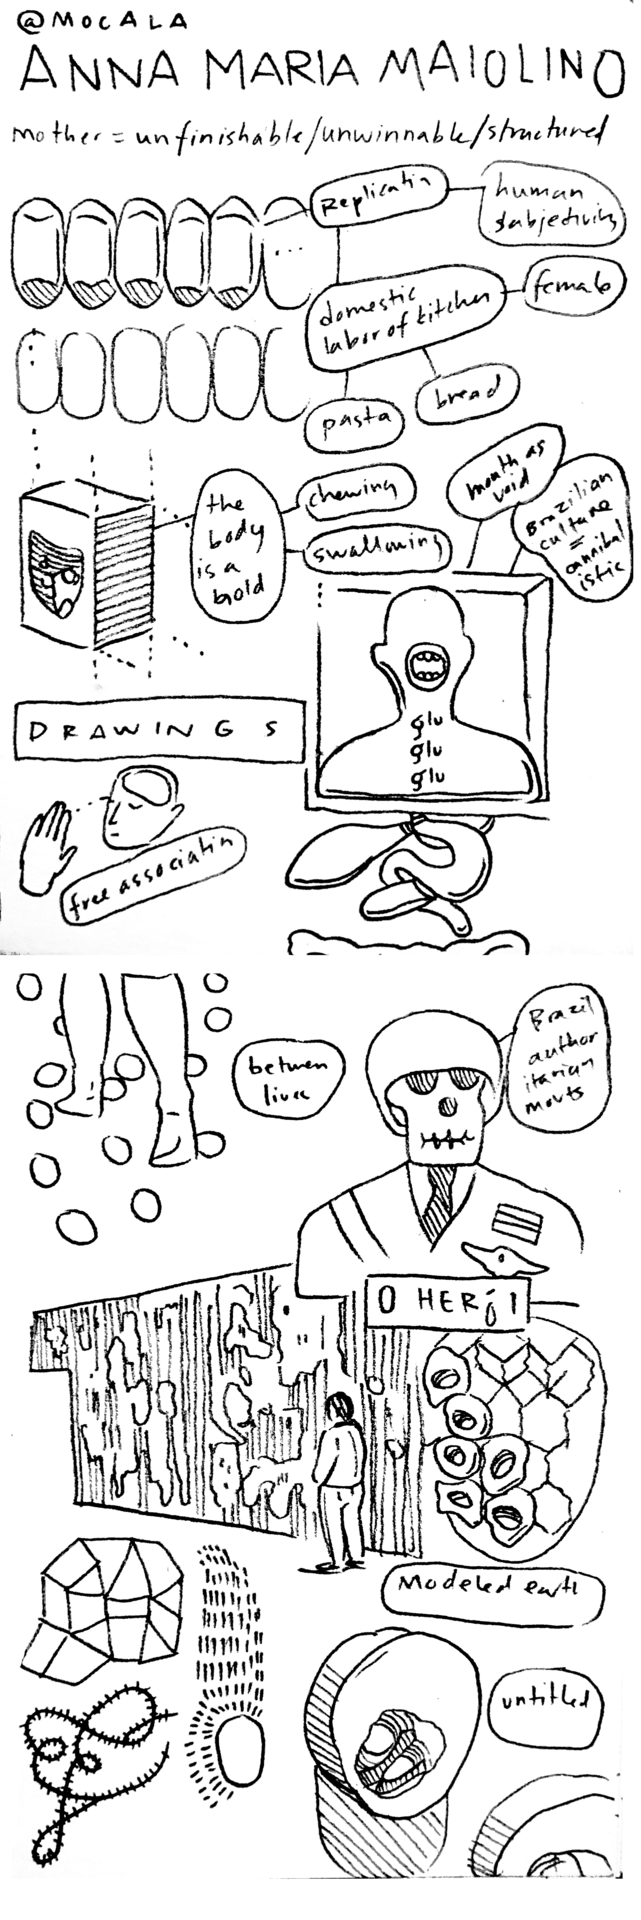 @MOCALA
ANNA MARIA MAIOLINO
mother = unfinishable/unwinnable/structured
Replicatin
human
subjectivity
domestic
labor of kitchen
female
pasta
bread
the
body
is a
chewing
swallowing
mouth as
void
Brazilian
culture
=
cannibal
istic
glu
glu
glu
DRAWINGS
free associatin
between
lives
Brazil
author
itarian
O HERÓI
Modeled earth
untitled